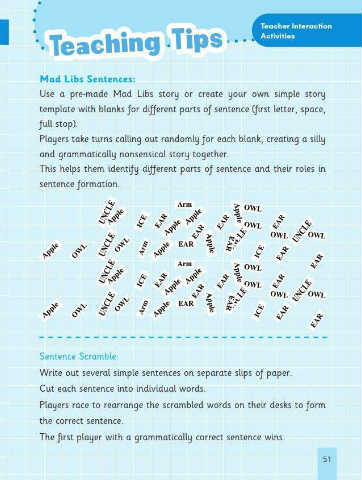 Teacher Interaction
Activities
Teaching Tips
Mad Libs Sentences:
Use a pre-made Mad Libs story or create your own simple story
template with blanks for different parts of sentence (first letter, space,
full stop).
Players take turns calling out randomly for each blank, creating a silly
and grammatically nonsensical story together.
This helps them identify different parts of sentence and their roles in
sentence formation.
Apple OWL UNCLE Apple ICE EAR Arm Apple Apple EAR Apple OWL EAR
UNCLE OWL Arm Apple EAR EAR Apple EAR OWL OWL UNCLE OWL
ICE EAR EAR
Apple OWL UNCLE Apple ICE EAR Arm Apple Apple EAR Apple OWL EAR
UNCLE OWL Arm Apple EAR EAR Apple EAR OWL OWL UNCLE OWL
ICE EAR EAR
Sentence Scramble:
Write out several simple sentences on separate slips of paper.
Cut each sentence into individual words.
Players race to rearrange the scrambled words on their desks to form
the correct sentence.
The first player with a grammatically correct sentence wins.
51